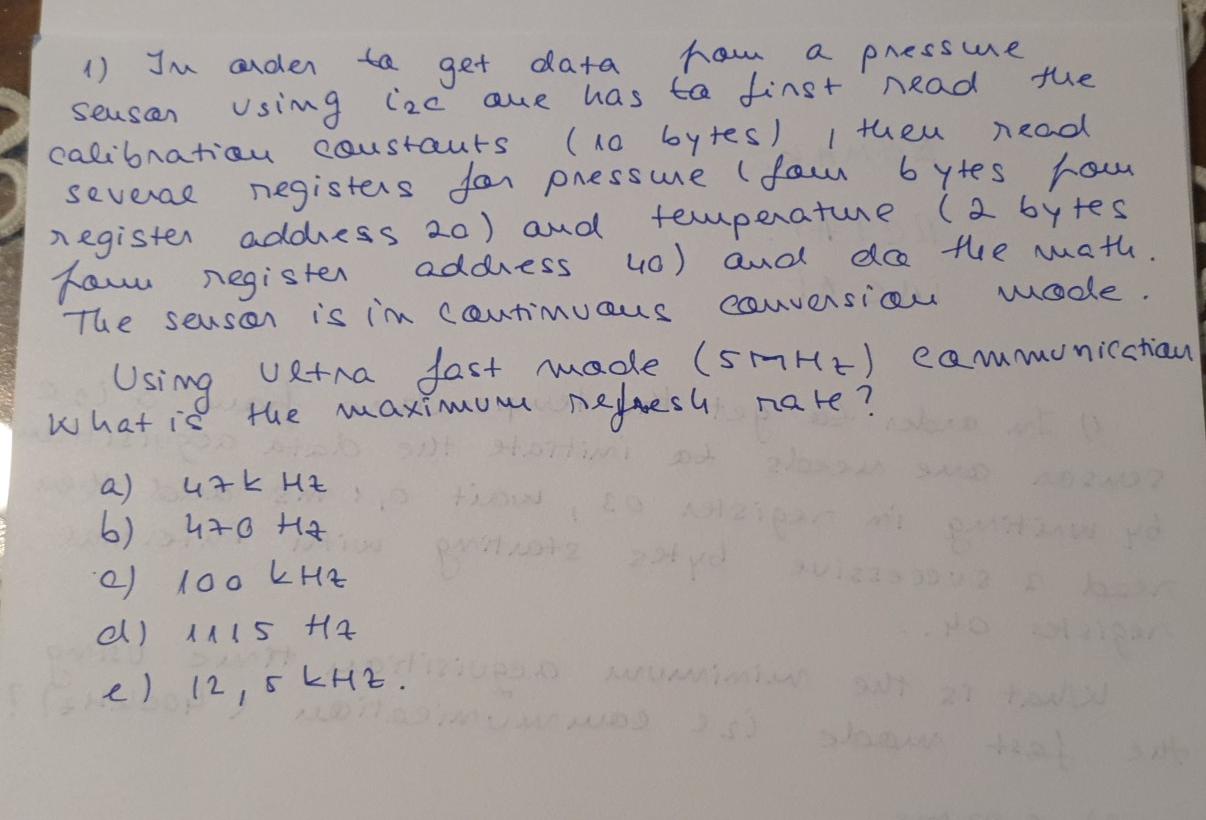 1) In order to get data from a pressure
sensor using i2c one has to first read the
calibration constants (10 bytes), then read
several registers for pressure (four bytes from
register address 20) and temperature (2 bytes
from register address 40) and do the math.
The sensor is in continuous conversion mode.
Using Ultra fast mode (5MHz) communication
What is the maximum refresh rate?
a) 47k Hz
b) 470 Hz
c) 100 kHz
d) 1115 Hz
e) 12,5 kHz.